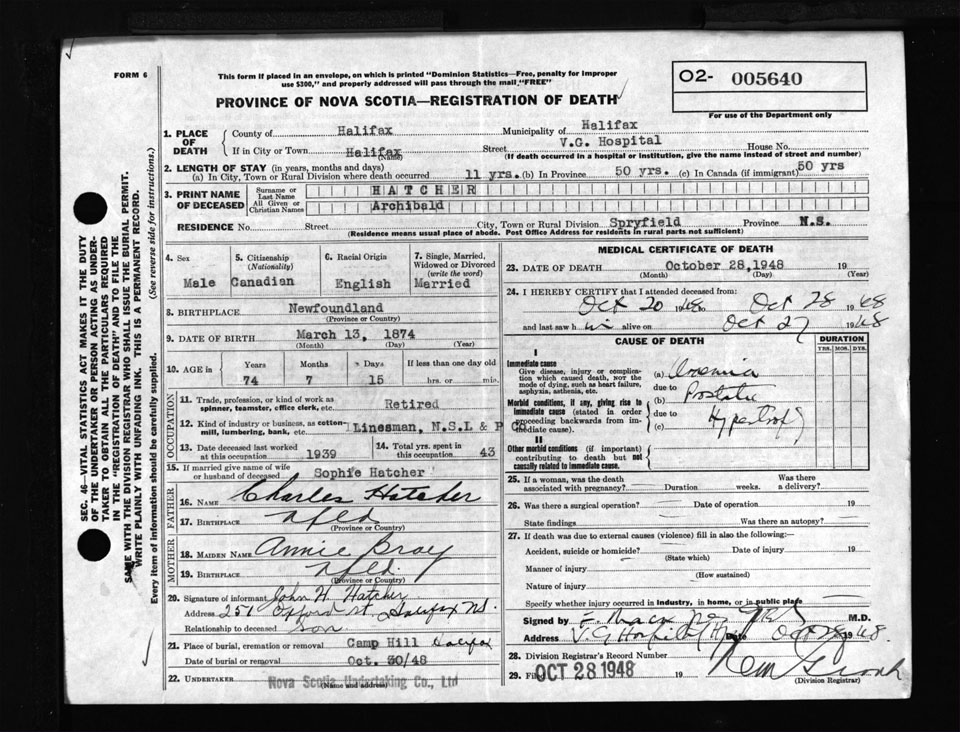 FORM 6
This form if placed in an envelope, on which is printed "Dominion Statistics—Free, penalty for improper
use $300," and properly addressed will pass through the mail "FREE"
PROVINCE OF NOVA SCOTIA—REGISTRATION OF DEATH
O2- 005640
For use of the Department only
SEC. 46—VITAL STATISTICS ACT MAKES IT THE DUTY
OF THE UNDERTAKER OR PERSON ACTING AS UNDER-
TAKER TO OBTAIN ALL THE PARTICULARS REQUIRED
IN THE "REGISTRATION OF DEATH" AND TO FILE THE
SAME WITH THE DIVISION REGISTRAR WHO SHALL ISSUE THE BURIAL PERMIT.
WRITE PLAINLY WITH UNFADING INK. THIS IS A PERMANENT RECORD.
Every item of information should be carefully supplied. (See reverse side for instructions.)
1. PLACE OF DEATH
County of Halifax Municipality of Halifax
If in City or Town Halifax Street V.G. Hospital House No.
(Name) (If death occurred in a hospital or institution, give the name instead of street and number)
2. LENGTH OF STAY (in years, months and days)
(a) In City, Town or Rural Division where death occurred 11 yrs. (b) In Province 50 yrs. (c) In Canada (if immigrant) 50 yrs
3. PRINT NAME OF DECEASED
Surname or Last Name HATCHER
All Given or Christian Names Archibald
RESIDENCE No. Street City, Town or Rural Division Spryfield Province N.S.
(Residence means usual place of abode. Post Office Address for residents in rural parts not sufficient)
4. Sex
Male
5. Citizenship (Nationality)
Canadian
6. Racial Origin
English
7. Single, Married, Widowed or Divorced (write the word)
Married
8. BIRTHPLACE Newfoundland
(Province or Country)
9. DATE OF BIRTH March 13, 1874
(Month) (Day) (Year)
10. AGE in Years Months Days If less than one day old
74 7 15 hrs. or min.
OCCUPATION
11. Trade, profession, or kind of work as
spinner, teamster, office clerk, etc. Retired
12. Kind of industry or business, as cotton-
mill, lumbering, bank, etc. Linesman, N.S.L & P Co.
13. Date deceased last worked at this occupation 1939
14. Total yrs. spent in this occupation 43
15. If married give name of wife
or husband of deceased Sophie Hatcher
FATHER
16. NAME Charles Hatcher
17. BIRTHPLACE Nfld
(Province or Country)
MOTHER
18. MAIDEN NAME Annie Bray
19. BIRTHPLACE Nfld.
(Province or Country)
20. Signature of informant John H. Hatcher
Address 251 Oxford St. Halifax NS.
Relationship to deceased son
21. Place of burial, cremation or removal Camp Hill Halifax
Date of burial or removal Oct. 30/48
22. UNDERTAKER Nova Scotia Undertaking Co., Ltd
(Name and address)
MEDICAL CERTIFICATE OF DEATH
23. DATE OF DEATH October 28, 1948 19
(Month) (Day) (Year)
24. I HEREBY CERTIFY that I attended deceased from:
Oct 20 1948 Oct 28 1948
and last saw him alive on Oct 27 1948
CAUSE OF DEATH
DURATION
YRS. MOS. DYS.
I
Immediate cause
Give disease, injury or complica-
tion which caused death, not the
mode of dying, such as heart failure,
asphyxia, asthenia, etc.
(a) Uremia
due to
Morbid conditions, if any, giving rise to
immediate cause (stated in order
proceeding backwards from im-
mediate cause).
(b) Prostatic
due to
(c) Hypertrophy
II
Other morbid conditions (if important)
contributing to death but not
causally related to immediate cause.
25. If a woman, was the death
associated with pregnancy? Duration weeks. Was there a delivery?
26. Was there a surgical operation? Date of operation 19
State findings Was there an autopsy?
27. If death was due to external causes (violence) fill in also the following:
Accident, suicide or homicide? Date of injury 19
(State which)
Manner of injury
(How sustained)
Nature of injury
Specify whether injury occurred in industry, in home, or in public place
Signed by M.D.
Address V.G. Hospital Date Oct 28 1948.
28. Division Registrar's Record Number
29. Filed OCT 28 1948 19
(Division Registrar)